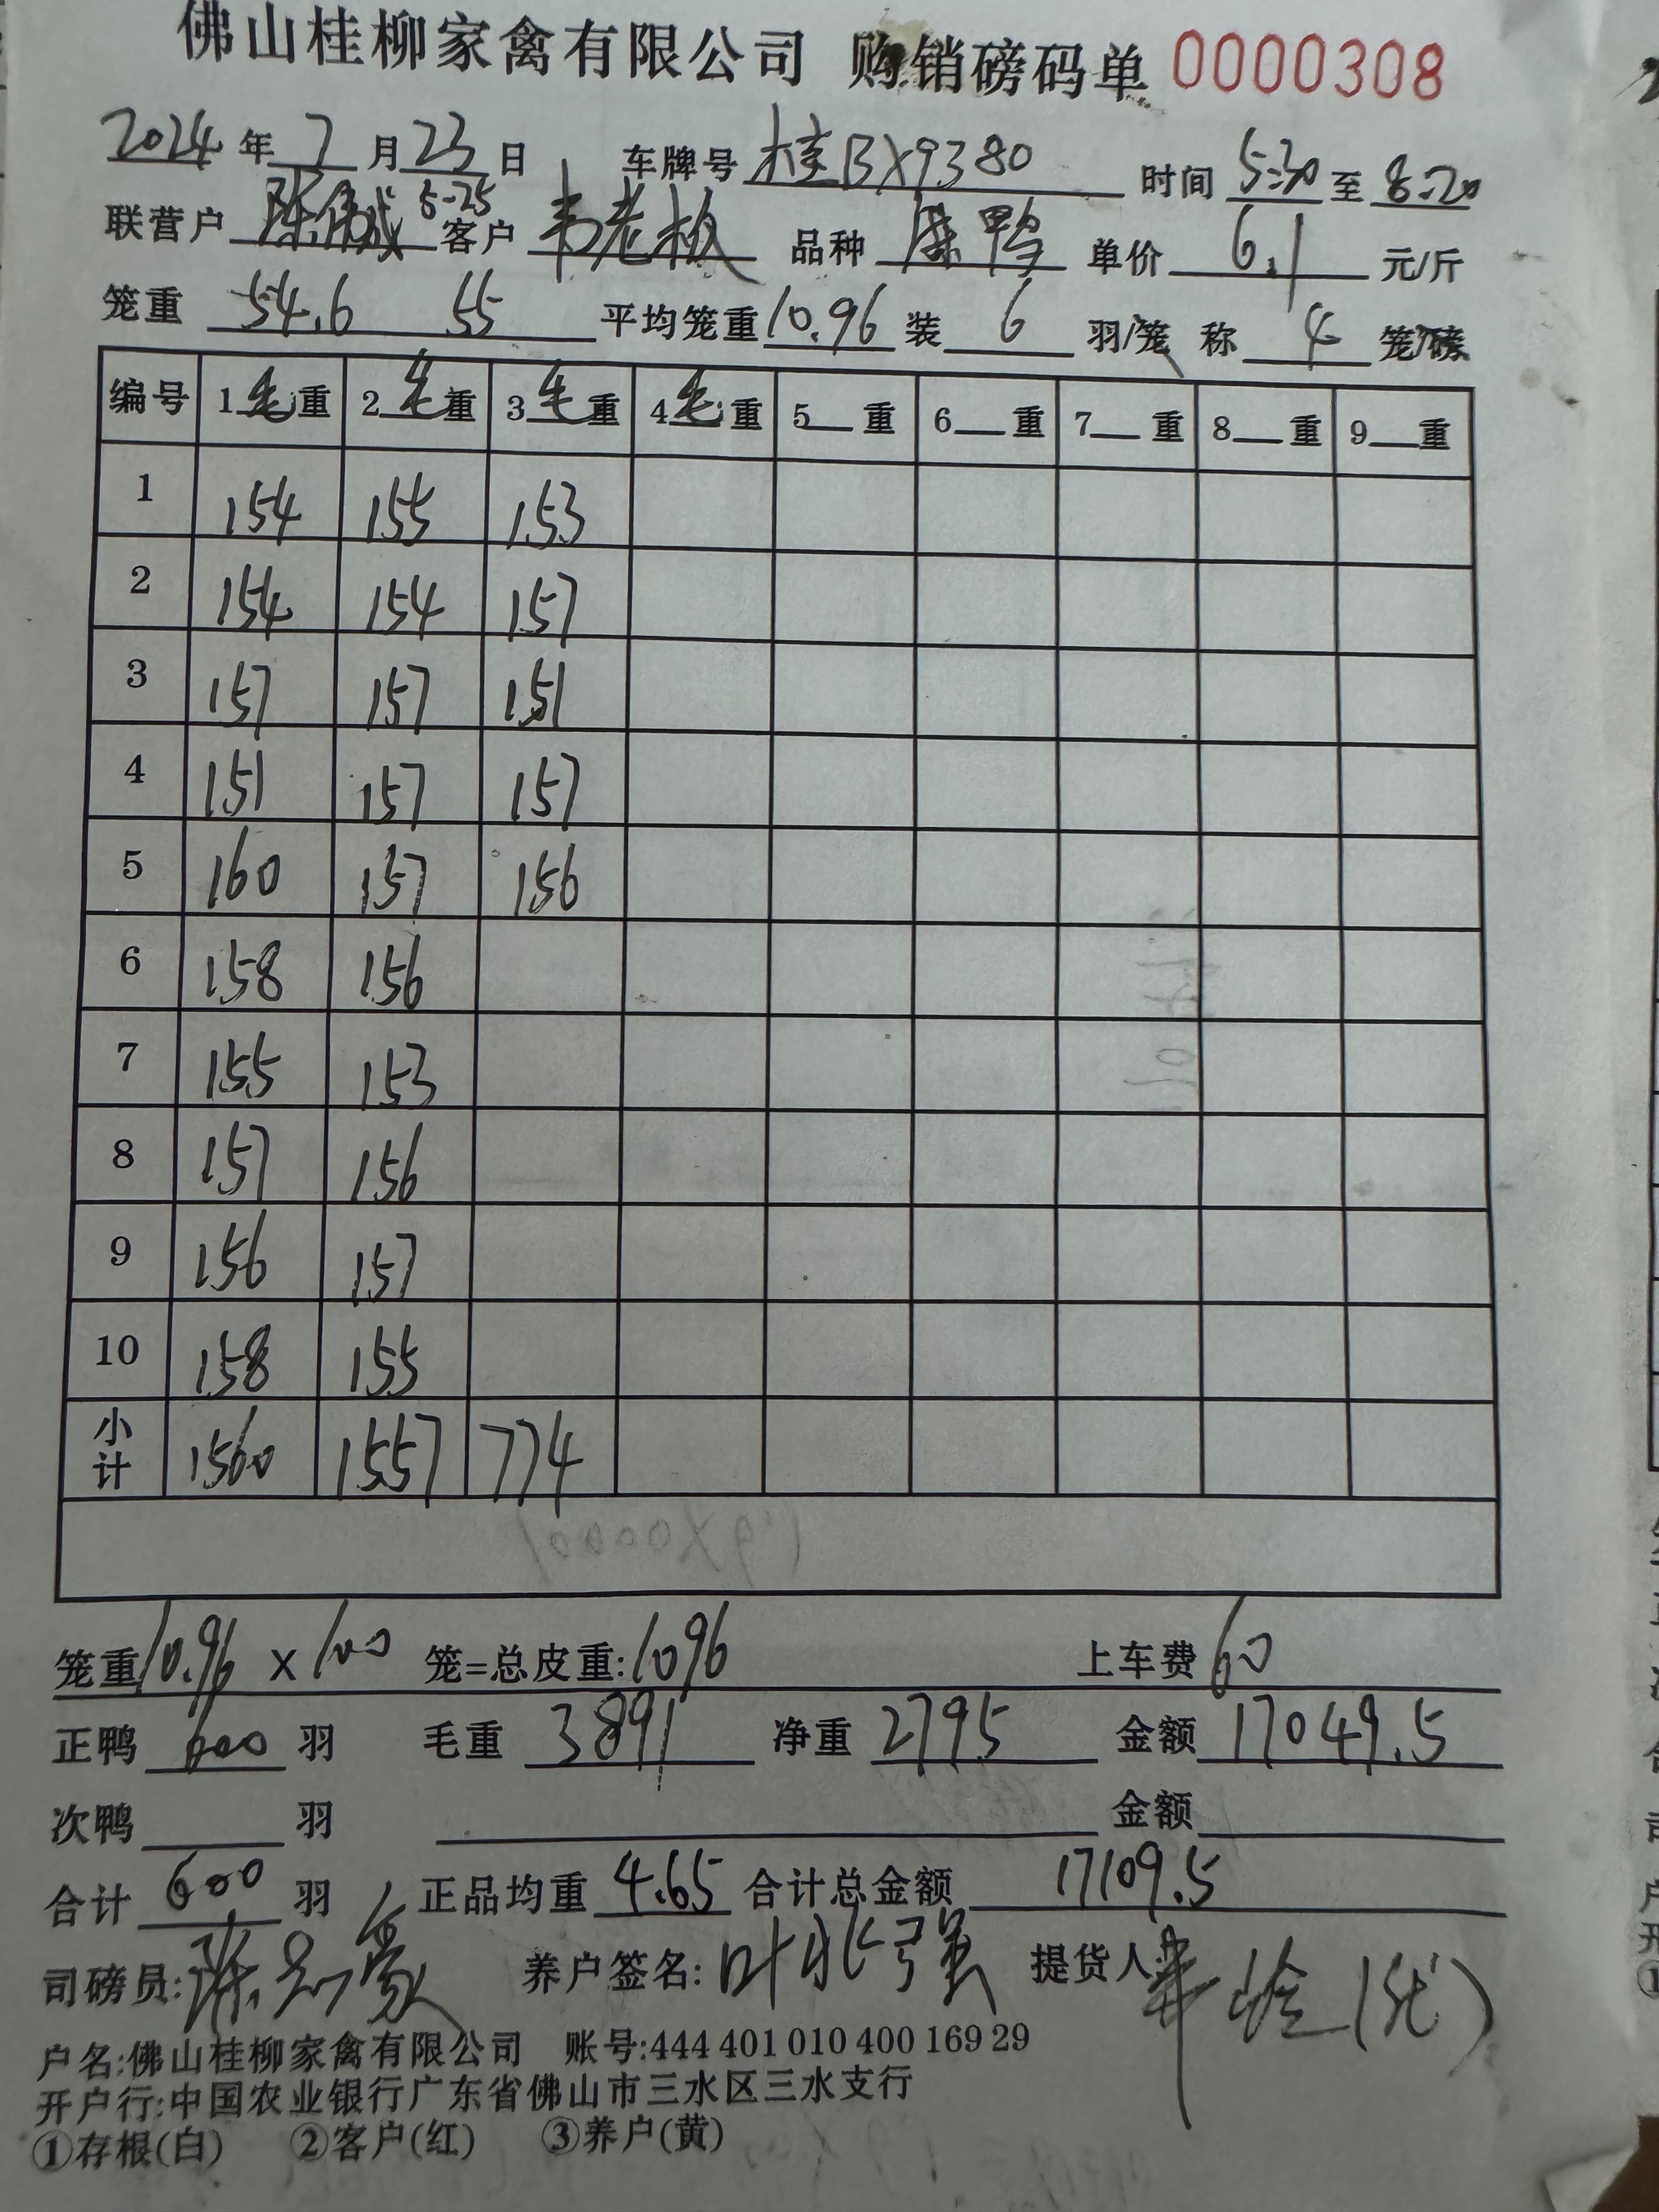 佛山桂柳家禽有限公司 购销磅码单 0000308
2024 年 7 月 23 日 车牌号 桂BX9380 时间 5:30 至 8:20
联营户 陈伟成 5-25 客户 韦老板 品种 康鸭 单价 6.1 元/斤
笼重 54.6 55 平均笼重 10.96 装 6 羽/笼 称 4 笼/磅
编号 1毛重 2毛重 3毛重 4毛重 5__重 6__重 7__重 8__重 9__重
1 154 155 153
2 154 154 157
3 157 157 151
4 151 157 157
5 160 157 156
6 158 156
7 155 153
8 157 156
9 156 157
10 158 155
小计 1560 1557 774
笼重 10.96 X 100 笼=总皮重: 1096 上车费 60
正鸭 600 羽 毛重 3891 净重 2795 金额 17049.5
次鸭 羽 金额
合计 600 羽 正品均重 4.65 合计总金额 17109.5
司磅员: 养户签名: 叶兆强 提货人: (代)
户名:佛山桂柳家禽有限公司 账号:444 401 010 400 169 29
开户行:中国农业银行广东省佛山市三水区三水支行
①存根(白) ②客户(红) ③养户(黄)